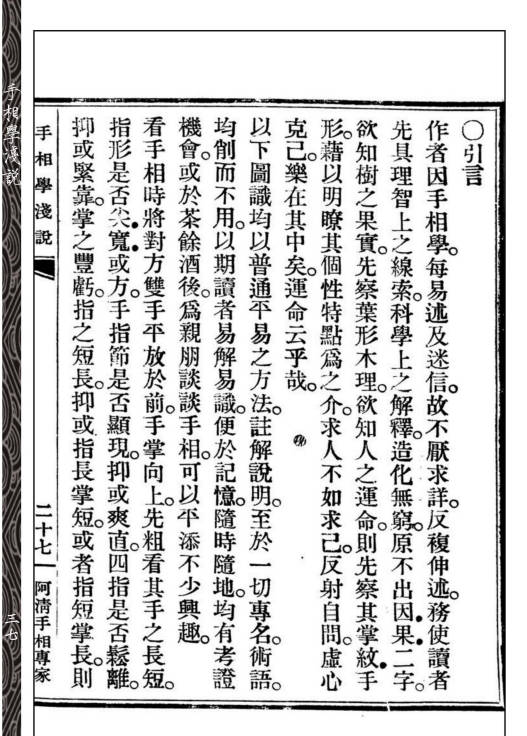 ○引言
作者因手相學。每易述及迷信。故不厭求詳。反複伸述。務使讀者
先具理智上之線索。科學上之解釋。造化無窮。原不出因果二字。
欲知樹之果實。先察葉形木理。欲知人之運命。則先察其掌紋手
形。藉以明瞭其個性特點爲之介。求人不如求己。反射自問。虛心
克己。樂在其中矣。運命云乎哉。
以下圖識均以普通平易之方法。註解說明。至於一切專名。術語。
均創而不用。以期讀者易解易識。便於記憶。隨時隨地。均有考證
機會。或於茶餘酒後。爲親朋談談手相。可以平添不少興趣。
看手相時將對方雙手平放於前。手掌向上。先粗看其手之長短。
指形是否尖。寬。或方。手指節是否顯現。抑或爽直。四指是否鬆離。
抑或緊靠。掌之豐虧。指之短長。抑或指長掌短。或者指短掌長。則
手相學淺說
二十七
阿清手相專家
手相學淺說
三七